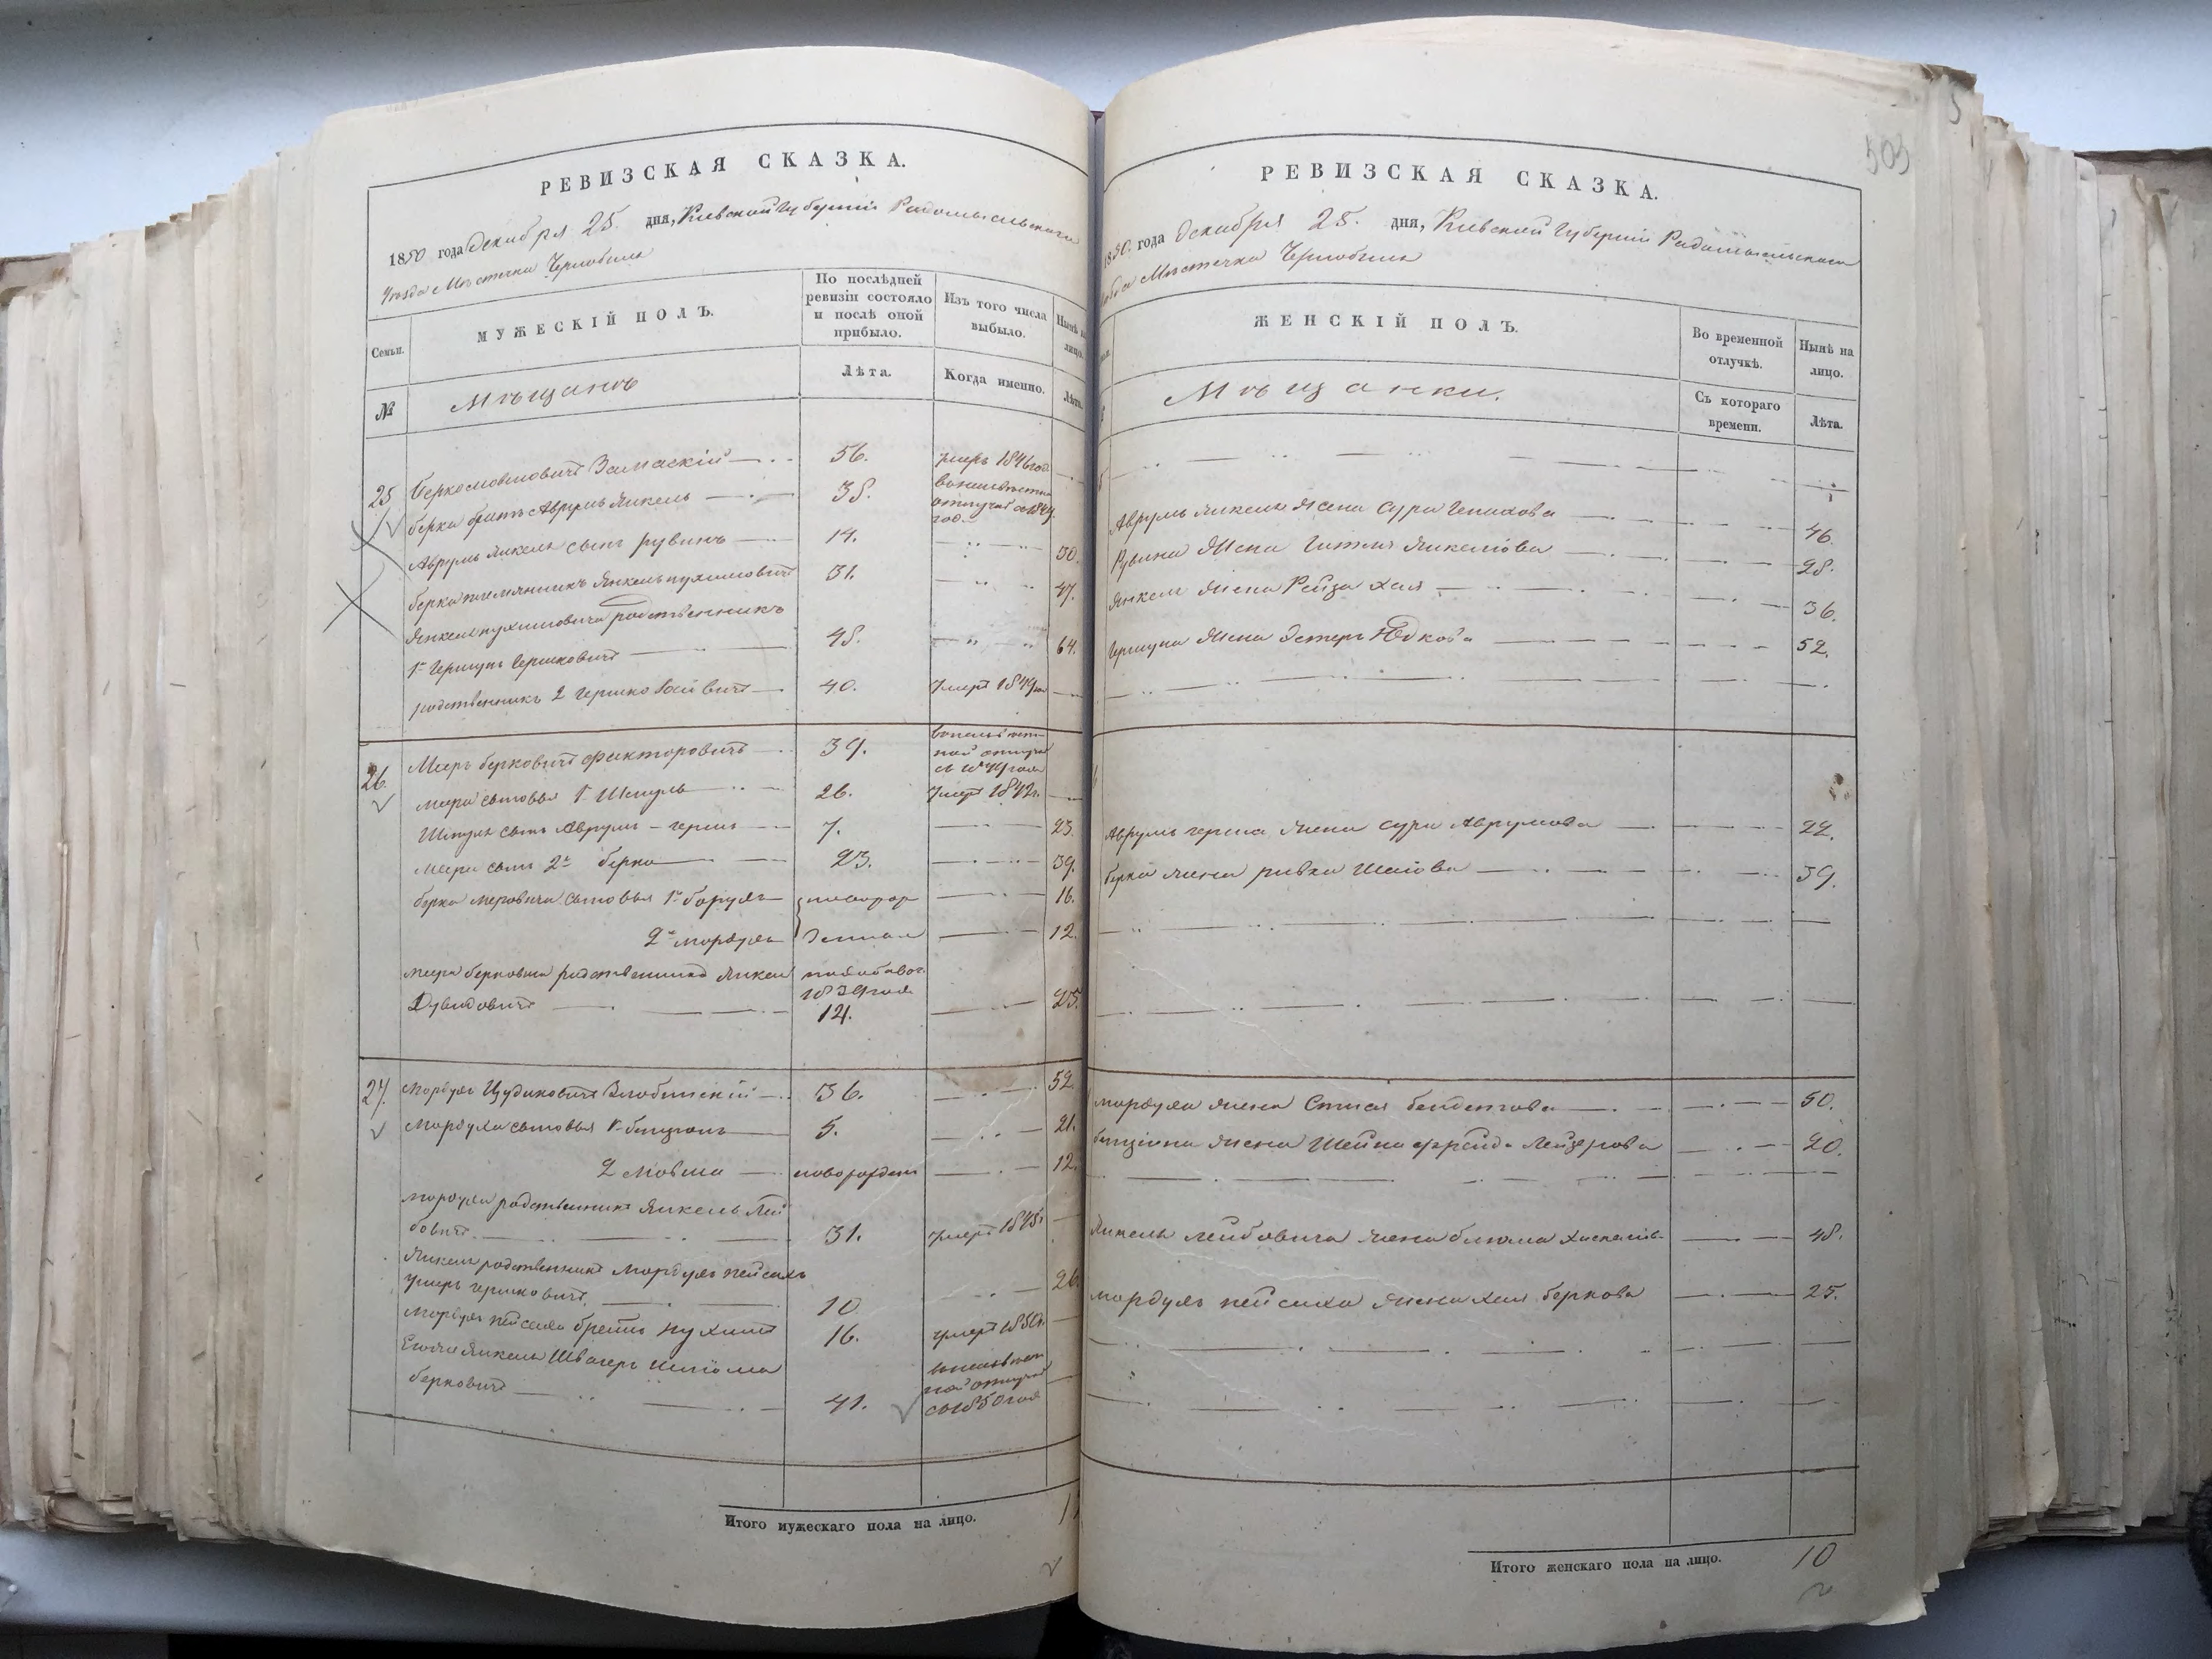 РЕВИЗСКАЯ СКАЗКА.
1850 года декабря 25. дня, Киевской Губернии Радомысльскаго
Уезда Местечка Чернобыля
Семьи.
МУЖЕСКІЙ ПОЛЪ.
По послѣдней
ревизіи состояло
и послѣ оной
прибыло.
Изъ того числа
выбыло.
Нынѣ на
лицо.
№
Мѣщанъ
Лѣта.
Когда именно.
Лѣта.
25 Берко Мовшовичъ Замаскій 56. умеръ 1846 год
Берка братъ Аврумъ Янкель 38.
Аврумъ Янкеля сынъ Рувинъ 14. 30.
Берка племянникъ Янкель Нухимовичъ 31. 47.
Янкеля Нухимовича родственникъ
1й Гершунъ Гершковичъ 48. 64.
родственникъ 2 Гершко 40. умеръ 1849
26. Мееръ Берковичъ Факторовичъ 39.
Меера сыновья 1й Шмуль 26. умеръ 1842г.
Шмуля сынъ Аврумъ-Герш 7. 23.
Меера сынъ 2й Берко 23. 39.
Берка Меровича сыновья 1й Борухъ новорож 16.
2й Мордухъ денные 12.
Меера Берковича родственникъ Янкель
Дувидовичъ 1839 года 14. 25.
27. Мордухъ Цудиковичъ Злобинскій 36. 52.
Мордуха сыновья 1й Бенционъ 5. 21.
2 Мовша новорожден 12.
Мордуха родственникъ Янкель Лей
бовичъ. 31. умеръ 1845г
Янкеля родственникъ Мордухъ Пейсахъ
Гершковичъ 10 26.
Мордухъ Пейсаха братъ Нухимъ 16. умеръ 1850г.
Янкеля Швагеръ Шлiома
Берковичъ 41. съ 1850 года
Итого мужескаго пола на лицо.
503
РЕВИЗСКАЯ СКАЗКА.
1850. года декабря 25. дня, Киевской Губерніи Радомысльскаго
Уезда Местечка Чернобыля
ЖЕНСКІЙ ПОЛЪ.
Во временной
отлучкѣ.
Нынѣ на
лицо.
Мѣщанки.
Съ котораго
времени.
Лѣта.
Аврумъ Янкеля жена Сура 46.
Рувина жена Гитля Янкелiова 28.
Янкеля жена Рейза Хая 36.
Гершуна жена Эстеръ 52.
Аврумъ Герша жена Сура Аврумова 22.
Берка жена Ривка Шаiова 39.
Мордуха жена 50.
Бенцiона жена Шейна Фрейда Лейзерова 20.
Янкель Лейбовича жена Блюма 48.
Мордухъ Пейсаха жена Хая Беркова 25.
Итого женскаго пола на лицо. 10